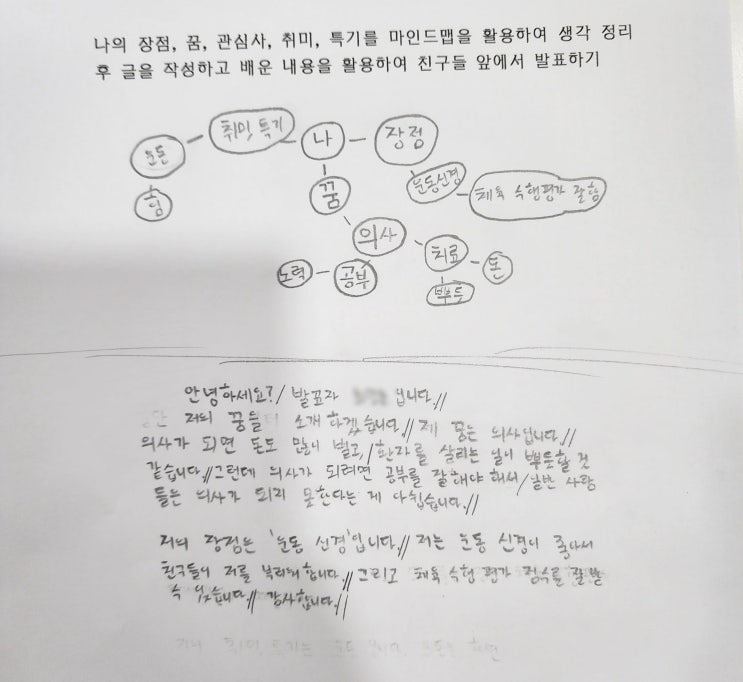 나의 장점, 꿈, 관심사, 취미, 특기를 마인드맵을 활용하여 생각 정리
후 글을 작성하고 배운 내용을 활용하여 친구들 앞에서 발표하기
운동
취미, 특기
나
장점
힘
꿈
운동신경
체육 수행평가 잘함
의사
노력
공부
치료
돈
뿌듯
안녕하세요?/ 발표자 입니다.//
저의 꿈을 소개 하겠습니다// 제 꿈은 의사입니다.//
의사가 되면 돈도 많이 벌고,/ 환자를 살리는 일이 뿌듯할 것
같습니다.// 그런데 의사가 되려면 공부를 잘해야 해서/ 일반 사람
들은 의사가 되지 못한다는 게 아쉽습니다.//
저의 장점은 '운동 신경'입니다.// 저는 운동 신경이 좋아서
친구들이 저를 부러워 합니다.// 그리고 체육 수행 평가 점수를 잘 받을
수 있습니다.// 감사합니다.//
저의 취미, 특기는 운동